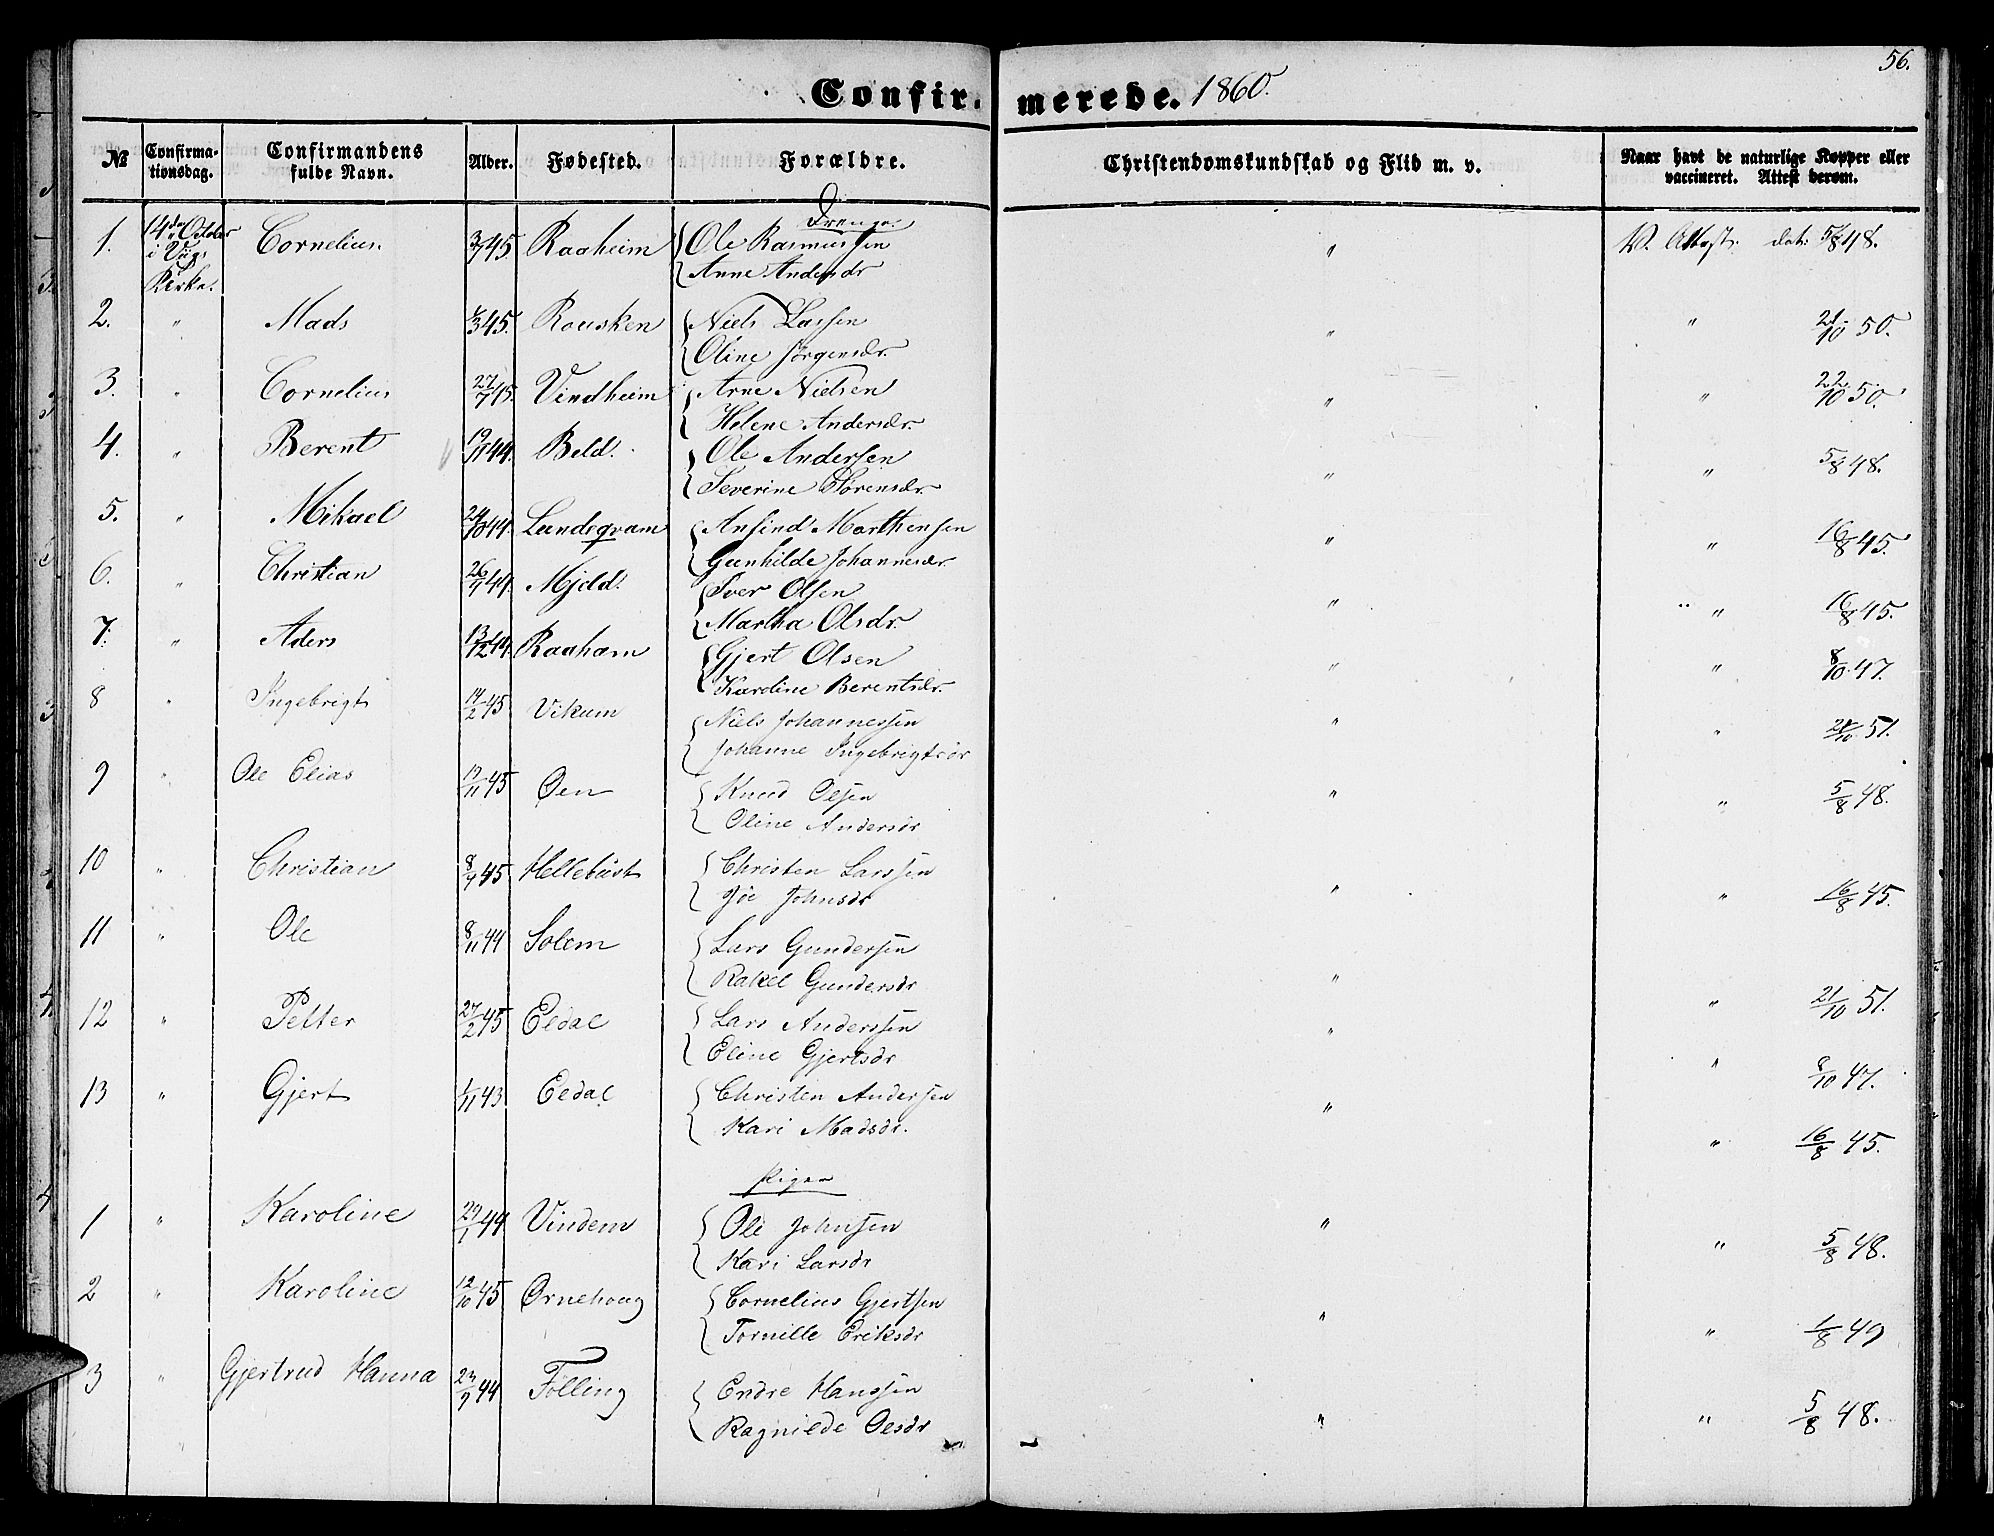 56.
Confir- merede. 1860.
№ Confirma-tionsdag. Confirmandens fulde Navn. Alder. Fødested. Forældre. Christendomskundskab og Flid m. v. Naar havt de naturlige Kopper eller vaccineret. Attest derom.
Drenge
1. 14de October i Viig Kirke. Cornelius. 3/7 45. Raaheim Ole Rasmussen V. Attest. dat. 5/8 48.
Anne Andersdr
2. " Mads 45. Rousken Niels Lassen " " 21/10 50.
Oline Jørgensdr.
3. " Cornelius 27/7 45. Vindheim Arne Nielsen " " 22/10 50.
Helene Andersdr.
4. " Berent 19/11 44. Beld. Ole Andersen " " 5/8 48.
Severine Sørensdr.
5. " Mikael 24/10 44. Lundeqvam Ansind Marthensen " " 16/8 45.
Gunhilde Johannesdr.
6. " Christian 26/9 44. Mjeld. Iver Olsen " " 16/8 45.
Martha Olsdr.
7. " Aders 13/12 44. Raaham Gjert Olsen " " 8/10 47.
Karoline Berentsdr.
8 " Ingebrigt 14/2 45 Vikum Niels Johannessen " " 21/10 51.
Johanne Ingebrigtsdr
9 " Ole Elias 19/11 45 Øen Knud Olsen " " 5/8 48.
Oline Andersdr
10 " Christian 8/7 45 Hellebust Christen Larssen " " 16/8 45.
Johnsdr
11 " Ole 8/11 44 Solem Lars Gundersen " " 21/10 51.
Rakel Gundersdr
12 " Petter 27/2 45 Eldal Lars Anderssen " " 8/10 47.
Eline Gjertsdr
13 " Gjert 1/11 43 Eldal Christen Andersen " " 16/8 45.
Kari Madsdr.
Piger
1 " Karoline 29/1 44 Vindem Ole Johnsen " " 5/8 48.
Kari Larsdr
2 " Karoline 12/10 45 Ørnehoug Cornelius Gjertsen " " 1/8 49
Tornille Eriksdr
3 " Gjertrud Hanna 23/9 44 Følling Endre Hanssen " " 5/8 48.
Ragnilde Olsdr